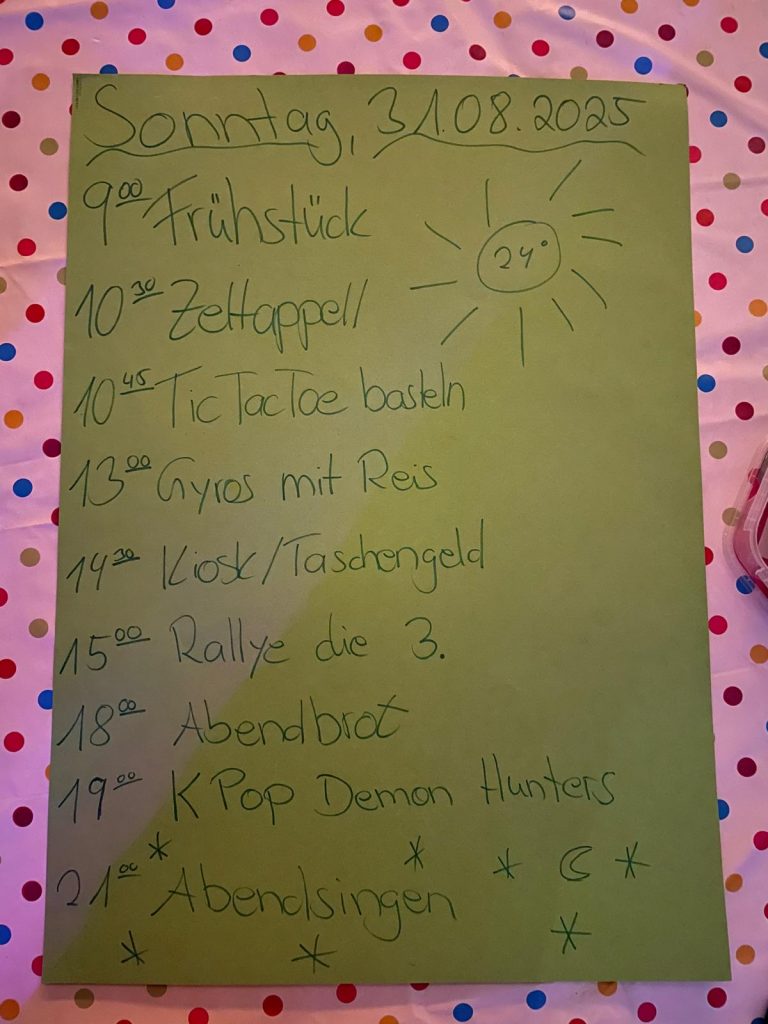 Sonntag, 31.08.2025
9⁰⁰ Frühstück
24°
10³⁰ Zeltappell
10⁴⁵ TicTacToe basteln
13⁰⁰ Gyros mit Reis
14³⁰ Kiosk/Taschengeld
15⁰⁰ Rallye die 3.
18⁰⁰ Abendbrot
19⁰⁰ K Pop Demon Hunters
21⁰⁰ Abendsingen